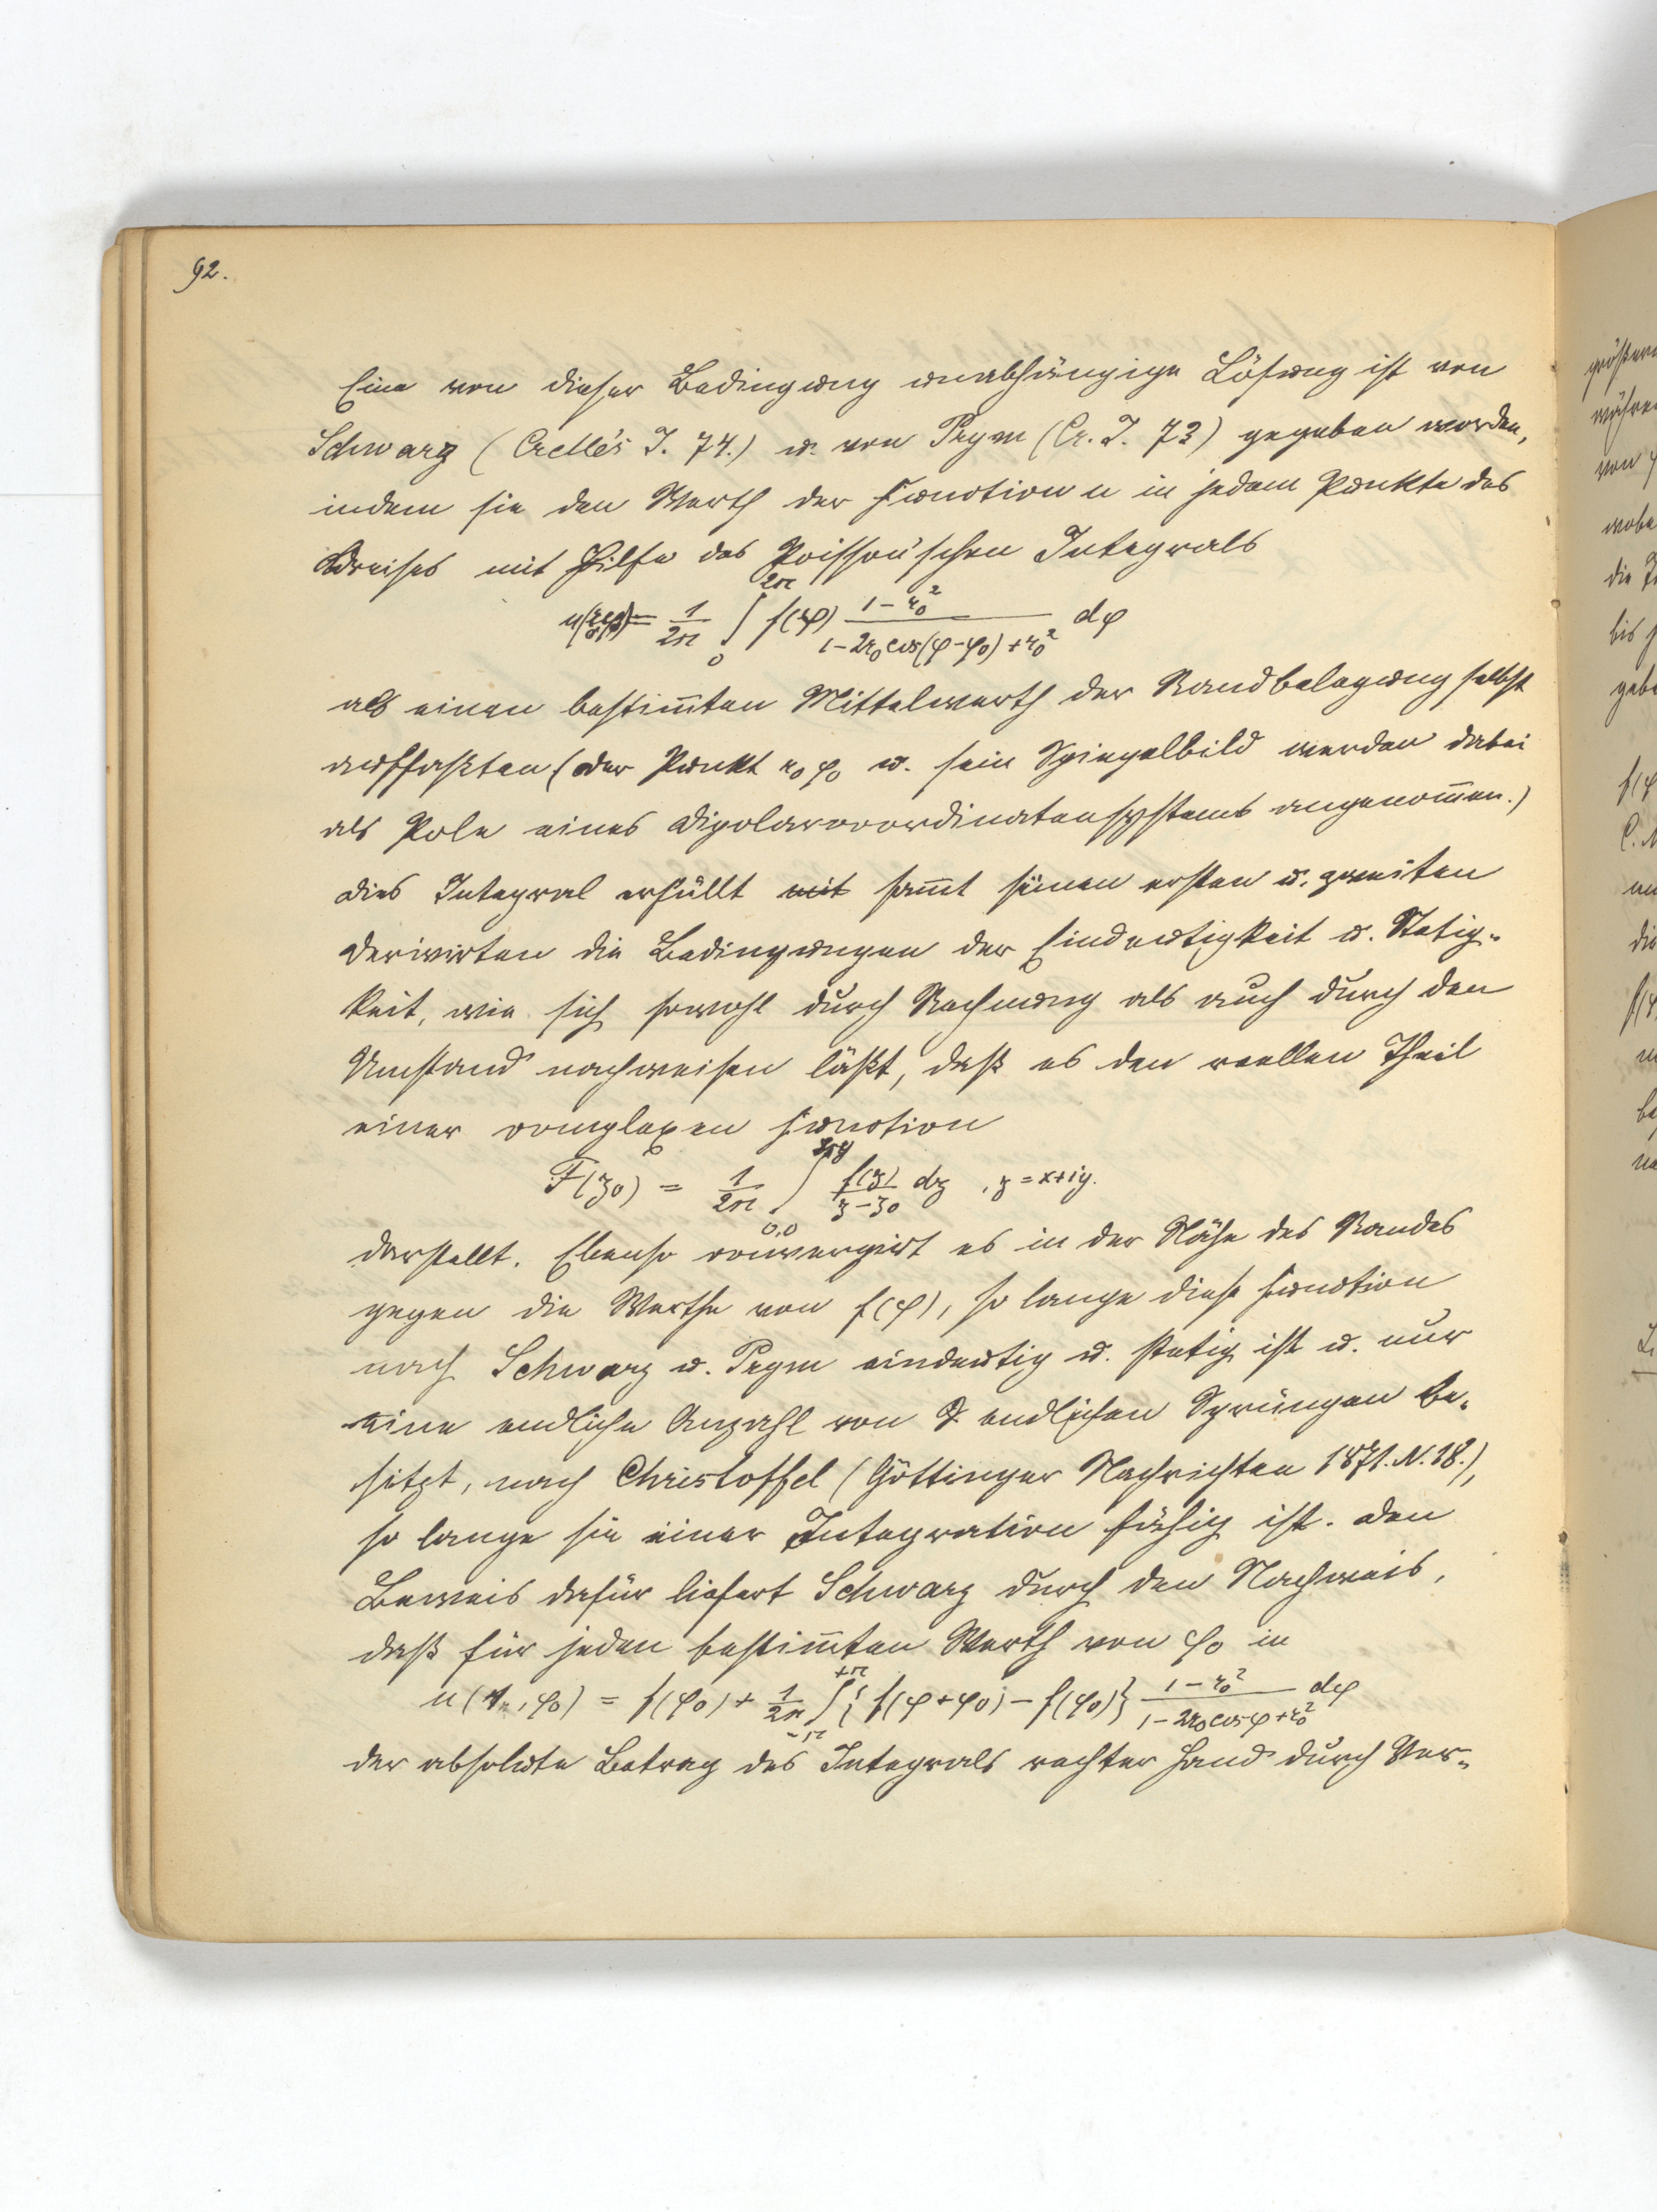 92.
Eine von dieser Bedingung unabhängige Lösung ist von
Schwarz (Crelle's J. 74.) u. von Prym (Cr. J. 73) gegeben worden,
indem sie den Werth der Function u in jedem Punkte des
Kreises mit Hilfe des Poisson'schen Integrals
u(r₀φ₀) = 1/2π ∫₀^2π f(φ) (1-r₀²)/(1-2r₀cos(φ-φ₀)+r₀²) dφ
als einen bestim̅ten Mittelwerth der Randbelegung selbst
auffaßten (der Punkt r₀φ₀ u. sein Spiegelbild werden dabei
als Pole eines Dipolarcoordinatensystems angenom̅en.)
Dies Integral erfüllt mit sam̅t seinen ersten u. zweiten
Derivirten die Bedingungen der Eindeutigkeit u. Stetig-
keit, wie sich sowohl durch Rechnung als auch durch den
Umstand nachweisen läßt, daß es den reellen Theil
einer complexen Function
F(z₀) = 1/2π ∫_0,0 f(z)/(z-z₀) dz , z=x+iy.
darstellt. Ebenso convergirt es in der Nähe des Randes
gegen die Werthe von f(φ), so lange diese Function
nach Schwarz u. Prym eindeutig u. stetig ist u. nur
eine endliche Anzahl von endlichen Sprüngen be-
sitzt, nach Christoffel (Göttinger Nachrichten 1871. N. 18.),
so lange sie einer Integration fähig ist. Den
Beweis dafür liefert Schwarz durch den Nachweis,
daß für jeden bestim̅ten Werth von φ₀ in
u(r₀,φ₀) = f(φ₀) + 1/2π ∫_-π^+π {f(φ+φ₀) - f(φ₀)} (1-r₀²)/(1-2r₀cosφ+r₀²) dφ
der absolute Betrag des Integrals rechter Hand durch Ver-